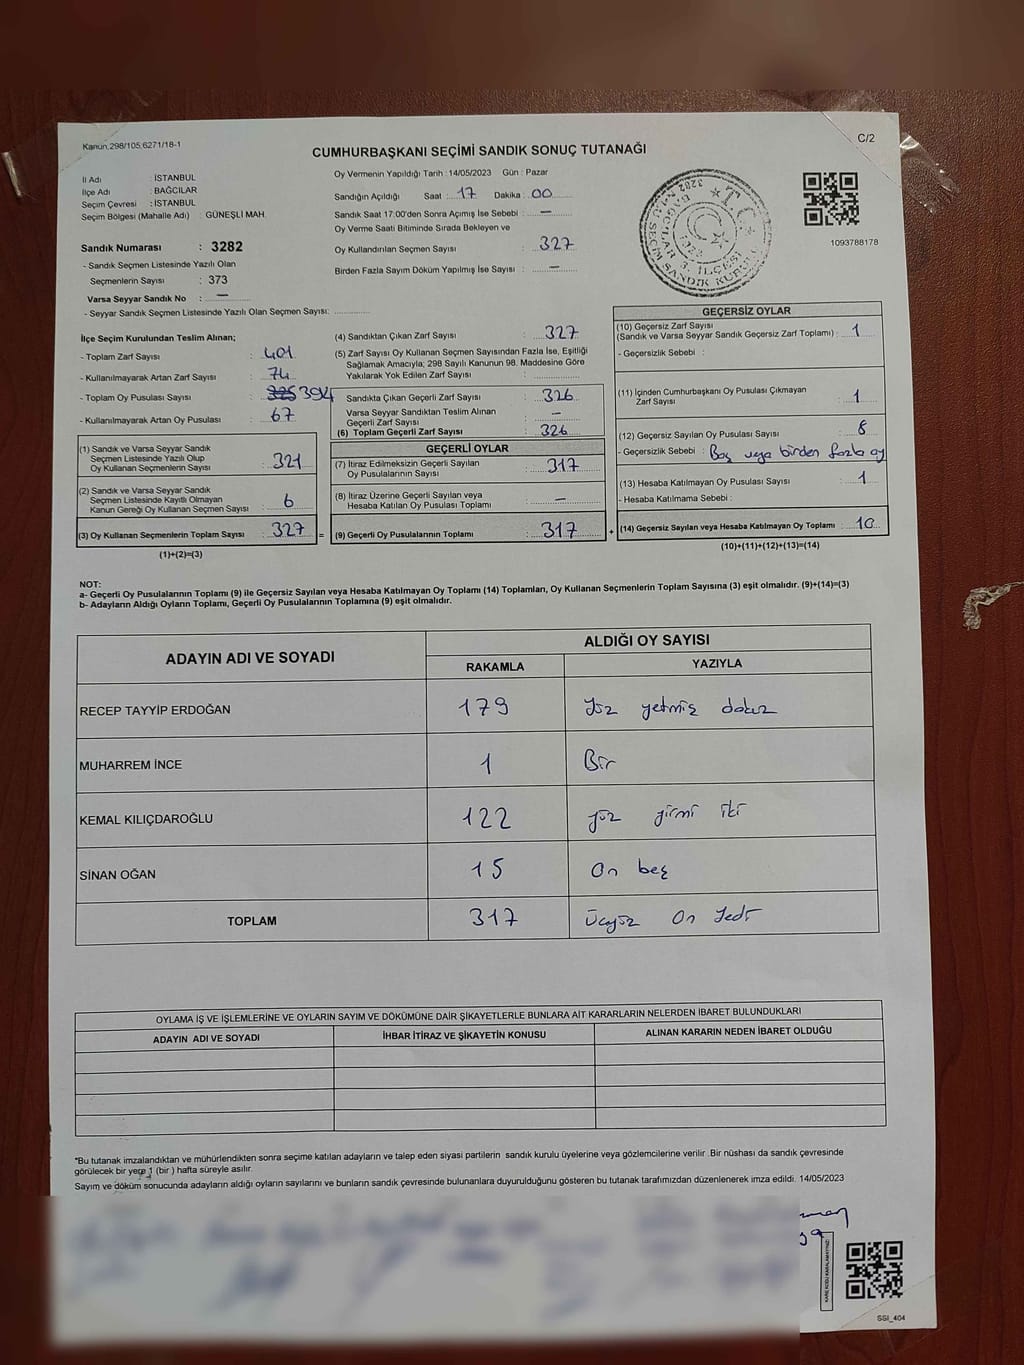 Kanun,298/105,6271/18-1
C/2
CUMHURBAŞKANI SEÇİMİ SANDIK SONUÇ TUTANAĞI
İl Adı : İSTANBUL
İlçe Adı : BAĞCILAR
Seçim Çevresi : İSTANBUL
Seçim Bölgesi (Mahalle Adı) : GÜNEŞLİ MAH.
Sandık Numarası : 3282
- Sandık Seçmen Listesinde Yazılı Olan
Seçmenlerin Sayısı : 373
Varsa Seyyar Sandık No : —
- Seyyar Sandık Seçmen Listesinde Yazılı Olan Seçmen Sayısı:
Oy Vermenin Yapıldığı Tarih : 14/05/2023 Gün : Pazar
Sandığın Açıldığı Saat : 17 Dakika : 00
Sandık Saat 17:00'den Sonra Açımış İse Sebebi : —
Oy Verme Saati Bitiminde Sırada Bekleyen ve
Oy Kullandırılan Seçmen Sayısı : 327
Birden Fazla Sayım Döküm Yapılmış İse Sayısı : —
T.C.
1093788178
İlçe Seçim Kurulundan Teslim Alınan;
- Toplam Zarf Sayısı : 401
- Kullanılmayarak Artan Zarf Sayısı : 74
- Toplam Oy Pusulası Sayısı : 394
- Kullanılmayarak Artan Oy Pusulası : 67
(1) Sandık ve Varsa Seyyar Sandık
Seçmen Listesinde Yazılı Olup
Oy Kullanan Seçmenlerin Sayısı : 321
(2) Sandık ve Varsa Seyyar Sandık
Seçmen Listesinde Kayıtlı Olmayan
Kanun Gereği Oy Kullanan Seçmen Sayısı : 6
(3) Oy Kullanan Seçmenlerin Toplam Sayısı : 327 =
(1)+(2)=(3)
(4) Sandıktan Çıkan Zarf Sayısı : 327
(5) Zarf Sayısı Oy Kullanan Seçmen Sayısından Fazla İse, Eşitliği
Sağlamak Amacıyla; 298 Sayılı Kanunun 98. Maddesine Göre
Yakılarak Yok Edilen Zarf Sayısı :
Sandıkta Çıkan Geçerli Zarf Sayısı : 326
Varsa Seyyar Sandıktan Teslim Alınan
Geçerli Zarf Sayısı : —
(6) Toplam Geçerli Zarf Sayısı : 326
GEÇERLİ OYLAR
(7) İtiraz Edilmeksizin Geçerli Sayılan
Oy Pusulalarının Sayısı : 317
(8) İtiraz Üzerine Geçerli Sayılan veya
Hesaba Katılan Oy Pusulası Toplamı : —
(9) Geçerli Oy Pusulalarının Toplamı : 317 +
GEÇERSİZ OYLAR
(10) Geçersiz Zarf Sayısı
(Sandık ve Varsa Seyyar Sandık Geçersiz Zarf Toplamı) : 1
- Geçersizlik Sebebi :
(11) İçinden Cumhurbaşkanı Oy Pusulası Çıkmayan
Zarf Sayısı : 1
(12) Geçersiz Sayılan Oy Pusulası Sayısı : 8
- Geçersizlik Sebebi : Boş veya birden fazla oy
(13) Hesaba Katılmayan Oy Pusulası Sayısı : 1
- Hesaba Katılmama Sebebi :
(14) Geçersiz Sayılan veya Hesaba Katılmayan Oy Toplamı : 10
(10)+(11)+(12)+(13)=(14)
NOT:
a- Geçerli Oy Pusulalarının Toplamı (9) ile Geçersiz Sayılan veya Hesaba Katılmayan Oy Toplamı (14) Toplamları, Oy Kullanan Seçmenlerin Toplam Sayısına (3) eşit olmalıdır. (9)+(14)=(3)
b- Adayların Aldığı Oyların Toplamı, Geçerli Oy Pusulalarının Toplamına (9) eşit olmalıdır.
ADAYIN ADI VE SOYADI
ALDIĞI OY SAYISI
RAKAMLA YAZIYLA
RECEP TAYYİP ERDOĞAN 179 Yüz yetmiş dokuz
MUHARREM İNCE 1 Bir
KEMAL KILIÇDAROĞLU 122 yüz yirmi iki
SİNAN OĞAN 15 On beş
TOPLAM 317 Üçyüz On Yedi
OYLAMA İŞ VE İŞLEMLERİNE VE OYLARIN SAYIM VE DÖKÜMÜNE DAİR ŞİKAYETLERLE BUNLARA AİT KARARLARIN NELERDEN İBARET BULUNDUKLARI
ADAYIN ADI VE SOYADI İHBAR İTİRAZ VE ŞİKAYETİN KONUSU ALINAN KARARIN NEDEN İBARET OLDUĞU
*Bu tutanak imzalandıktan ve mühürlendikten sonra seçime katılan adayların ve talep eden siyasi partilerin sandık kurulu üyelerine veya gözlemcilerine verilir .Bir nüshası da sandık çevresinde
görülecek bir yere 1 (bir ) hafta süreyle asılır.
Sayım ve döküm sonucunda adayların aldığı oyların sayılarını ve bunların sandık çevresinde bulunanlara duyurulduğunu gösteren bu tutanak tarafımızdan düzenlenerek imza edildi. 14/05/2023
KARE KODU KARALAMAYINIZ!
SSI_404